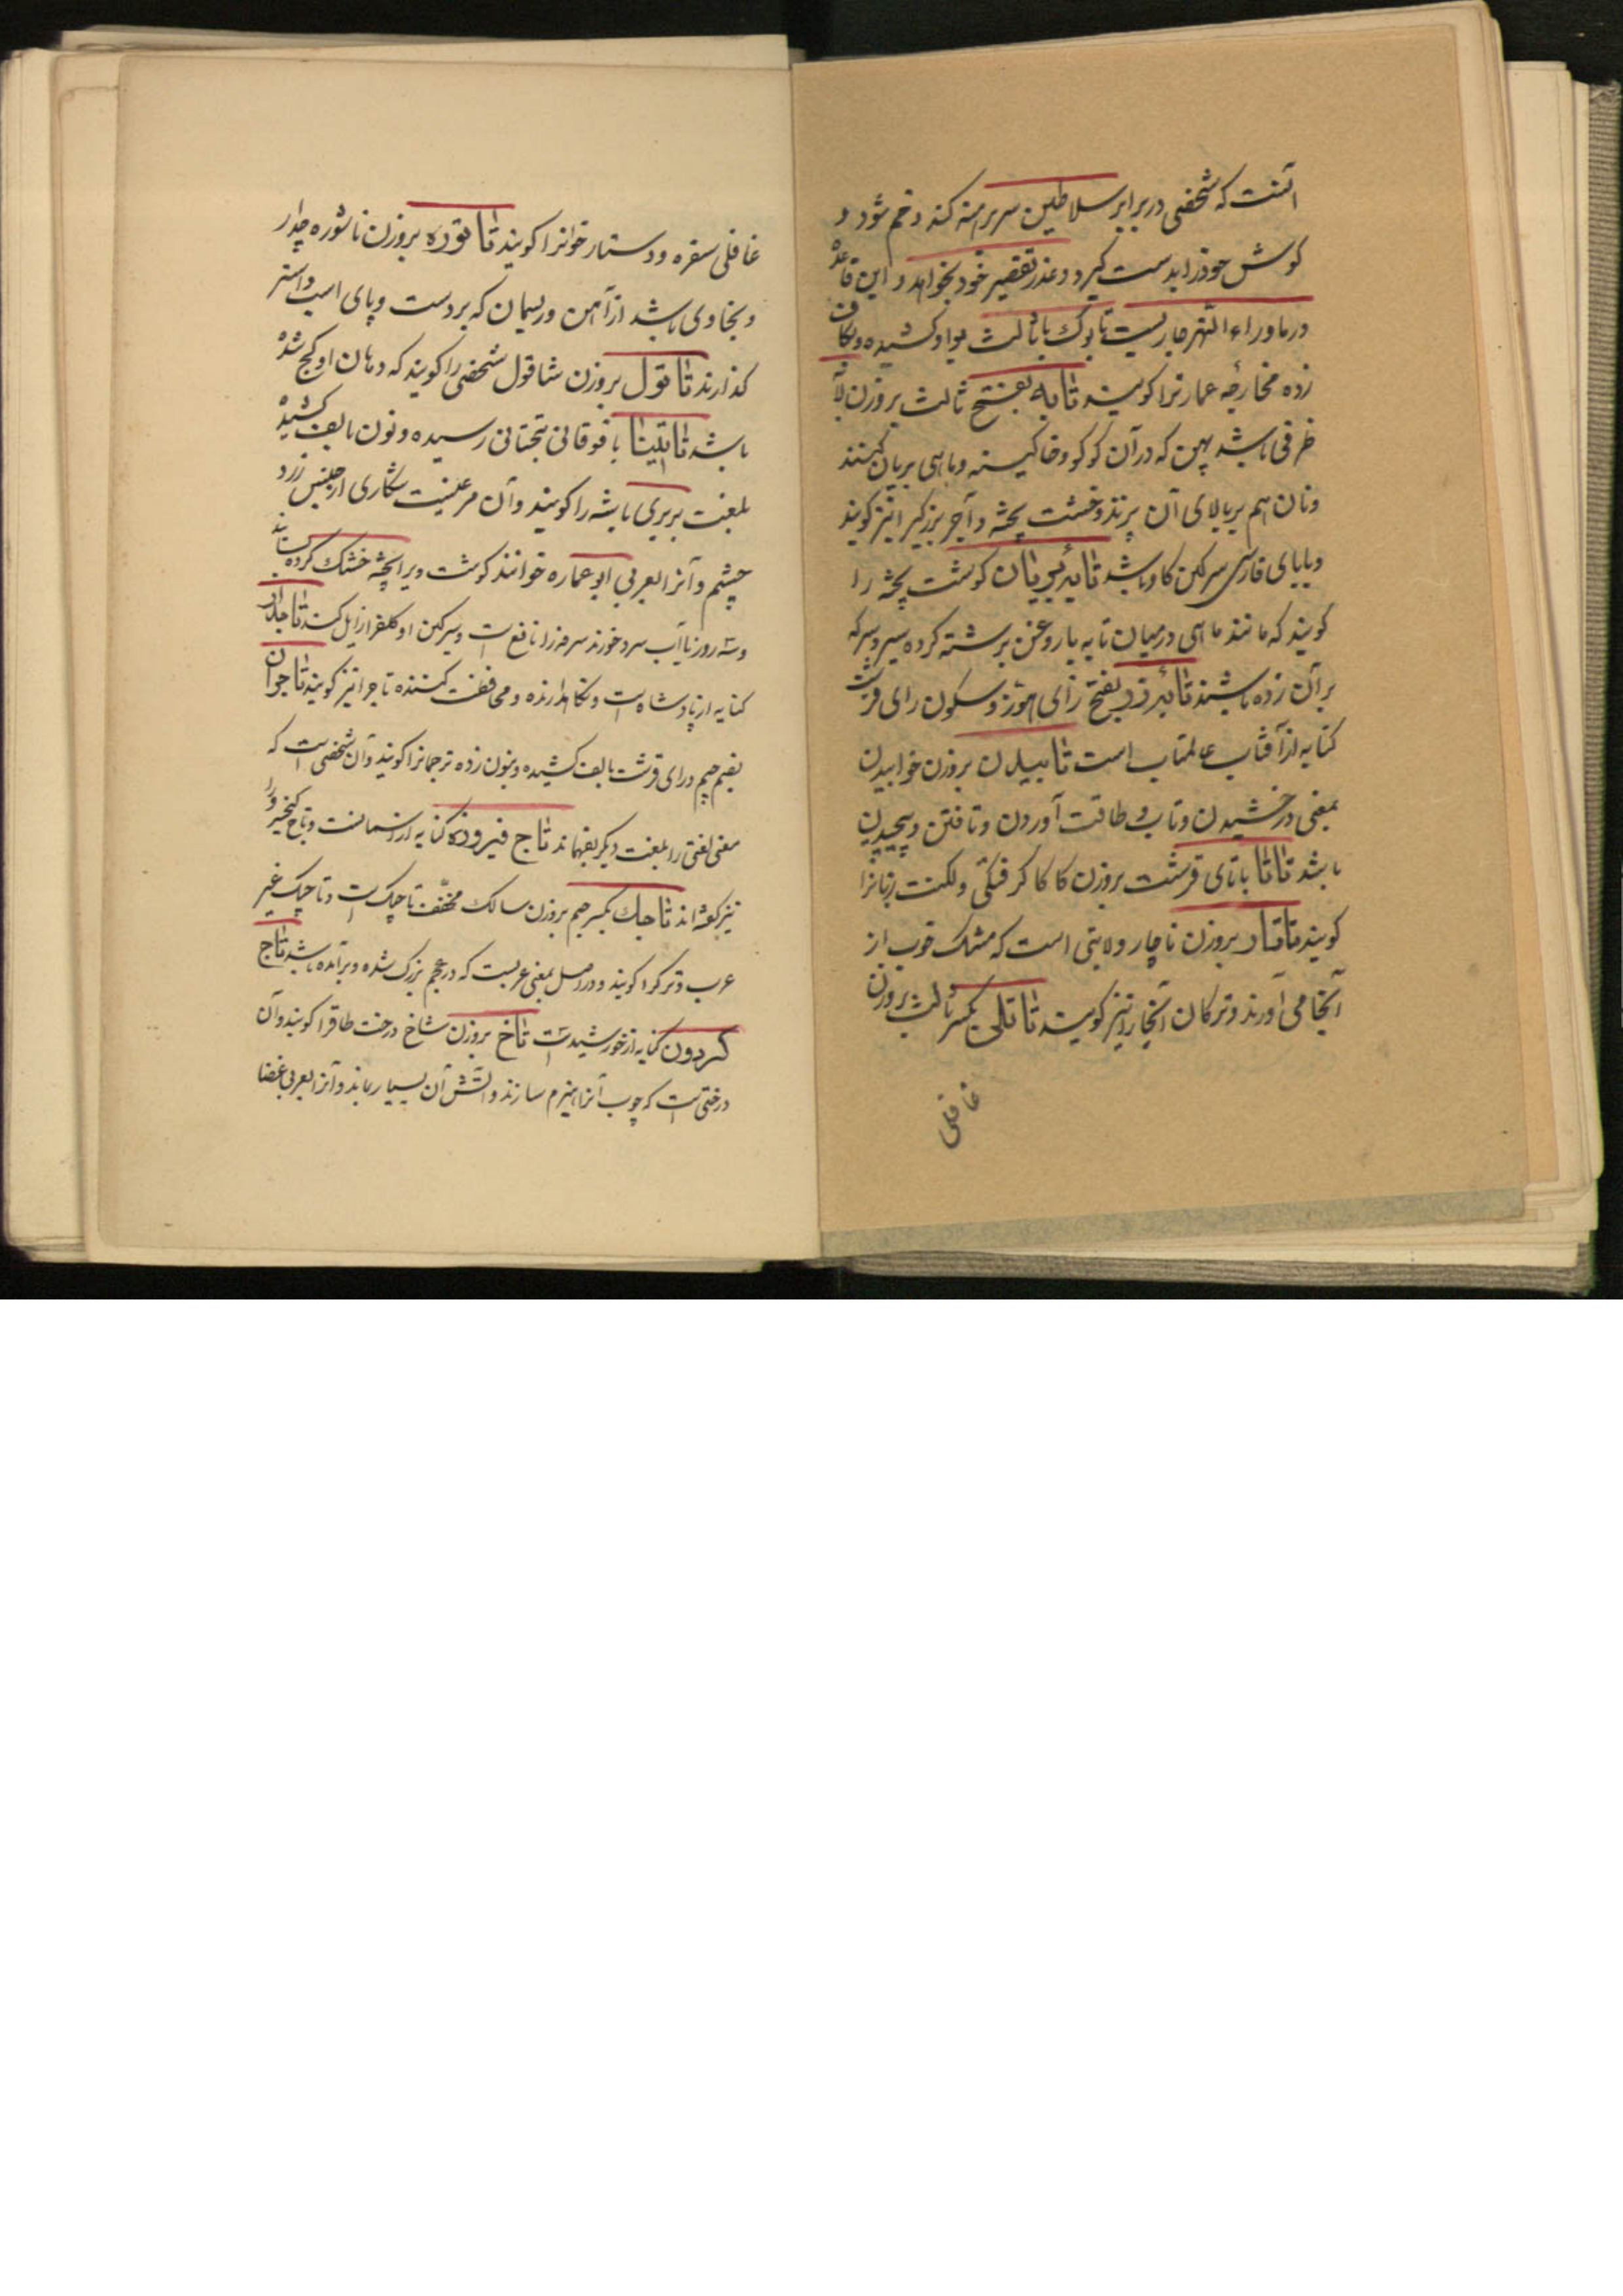 آنست که شخصی در برابر سلاطین سر برهنه کند و خم شود و
کوش خود را بدست کیرد و عذر تقصیر خود بخواهد و این قاعده
در ماوراء النهر جاریست تابوک با ثالث بواو کشیده و بکاف
زده مخارجه عمارترا کویند تابه بفتح ثالث بر وزن لابه
ظرفی باشد پهن که در آن کوکو و خاکینه و ماهی بریان کنند
ونان هم بر بالای آن پزند وخشت پخته و آجر بزرکرا نیز کویند
و با بای فارسی سرکین کاو باشد تابه بریان کوشت پخته را
کویند که مانند ماهی در میان تابه با روغن برشته کرده سیر و سرکه
بر آن زده باشند تابه زر بفتح زای هوز و سکون رای قرشت
کنایه از آفتاب عالمتاب است تابیدن بر وزن خوابیدن
بمعنی درخشیدن و تاب و طاقت آوردن و تافتن و پیچیدن
باشد تاتا با تای قرشت بروزن کاکا کرفتکی و لکنت زبانرا
کویند تاتار بروزن ناچار ولایتی است که مشک خوب از
آنجا می آورند و ترکان آنجا را نیز کویند تاتلی بکسر ثالث بروزن
غافلی
غافلی سفره و دستار خوانرا کویند تاتوره بروزن ناشوره چدار
و بخاوی باشد از آهن و ریسمان که بر دست و پای اسب و استر
کذارند تاتول بروزن شاقول شخصی را کویند که دهان او کج شده
باشد تاتینا با فوقانی بتحتانی رسیده و نون بالف کشیده
بلغت بربری باشه را کویند و آن مرغیست شکاری از جنس زرد
چشم و آنرا بعربی ابو عماره خوانند کوشت ویرا پخته خشک کرده بسایند
و سه روز با آب سرد خورند سرفه را نافع است و سرکین او کلف را زایل کند تاجدار
کنایه از پادشاه است و نکاهدارنده و محافظت کننده تاج را نیز کویند تاجران
بضم جیم و رای قرشت بالف کشیده و بنون زده ترجمانرا کویند و آن شخصی است که
معنی لغتی را بلغت دیکر بفهماند تاج فیروزه کنایه از آسمانست و تاج کیخسرو را
نیز کفته اند تاجک بکسر جیم بروزن سالک مخفف تاجیک است و تاجیک غیر
عرب و ترک را کویند و در اصل بمعنی عربست که در عجم بزرک شده و بر آمده باشد تاج
کردون کنایه از خورشید است تاخ بروزن شاخ درخت طاق را کویند و آن
درختی است که چوب آنرا هیزم سازند و آتش آن بسیار بماند و آنرا بعربی غضا